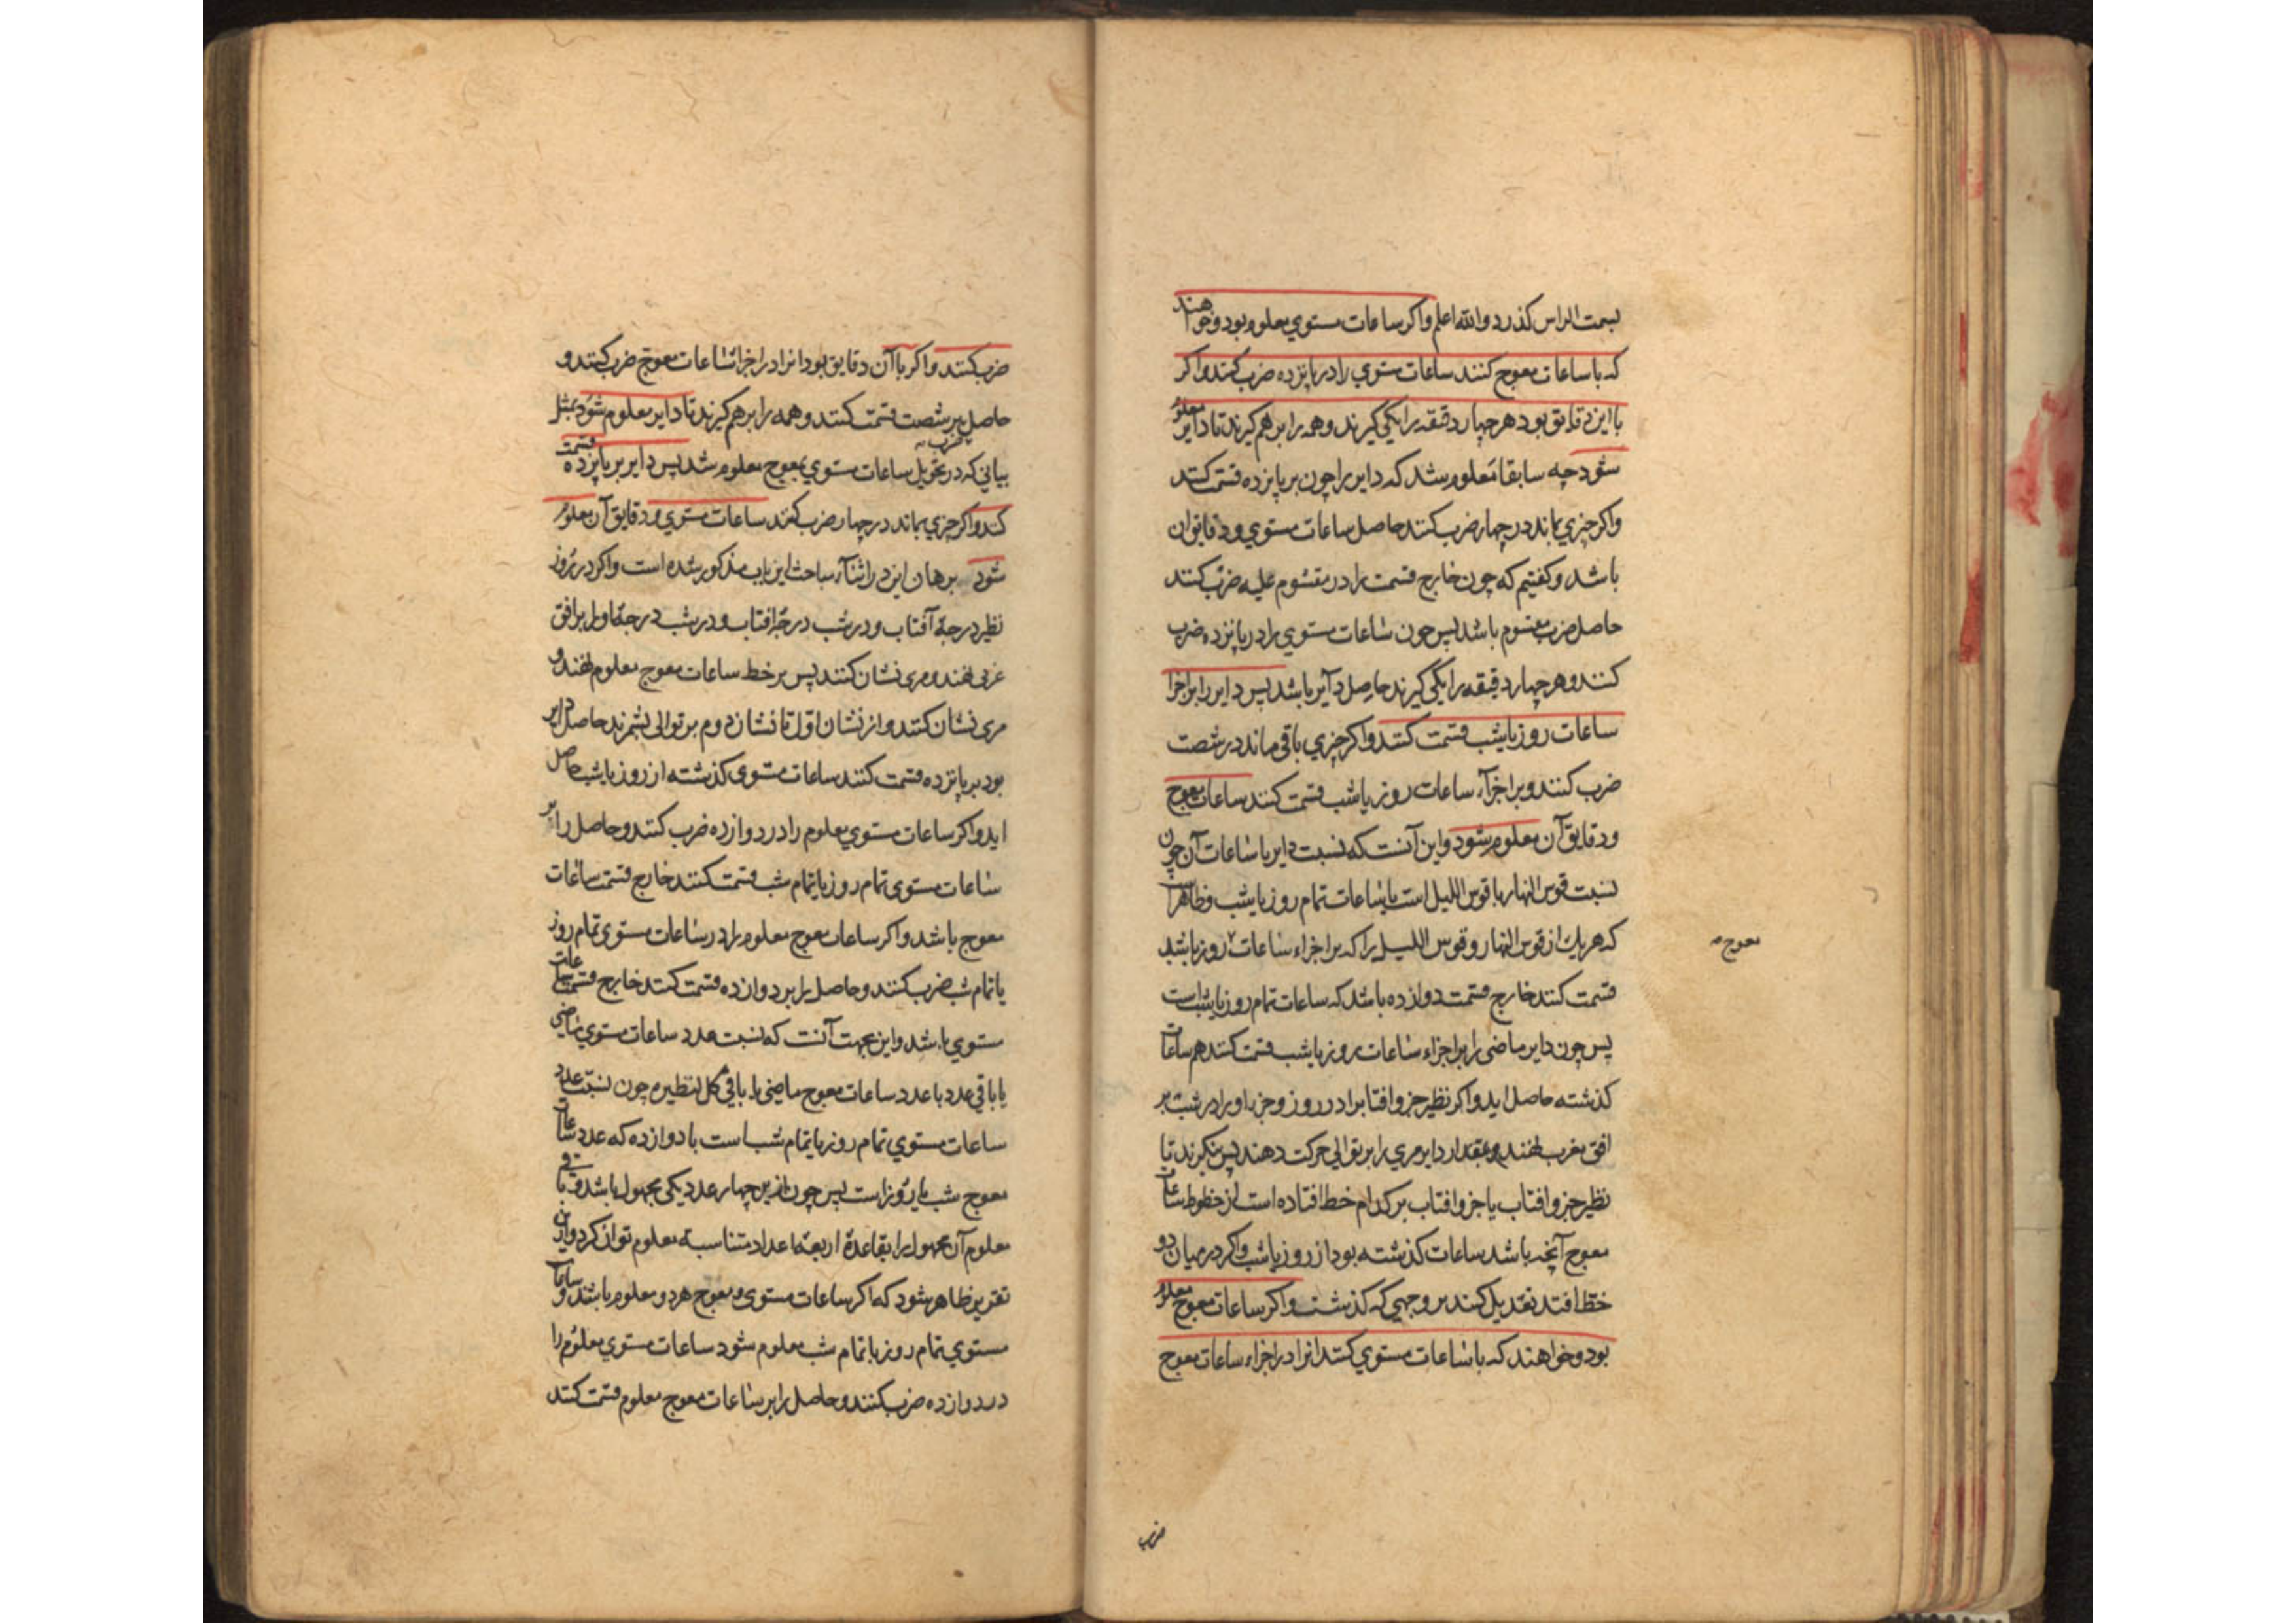 بسمت الراس کذرد والله اعلم واکر ساعات مستوي معلوم بود وخواهند
که با ساعات معوج کنند ساعات مستوي را در پانزده ضرب کنند واکر
با این دقایق بود هر چهار دقیقه را یکی کیرند وهمه را بر هم کیرند تا دایر معلوم
شود چه سابقا معلوم شد که دایر را چون بر پانزده قسمت کنند
واکر چیزي بماند در چهار ضرب کنند حاصل ساعات مستوي ودقایق آن
باشد وکفتیم که چون خارج قسمت را در مقسوم علیه ضرب کنند
حاصل ضرب مقسوم باشد پس چون ساعات مستوي را در پانزده ضرب
کنند وهر چهار دقیقه را یکی کیرند حاصل دآیر باشد پس دایر را بر اجزا
ساعات روز یا شب قسمت کنند واکر چیزي باقی ماند در شصت
ضرب کنند وبر اجزآء ساعات روز یا شب قسمت کنند ساعات معوج
ودقایق آن معلوم شود واین آنست که نسبت دایر با ساعات آن چون
نسبت قوس النهار یا قوس اللیل است با ساعات تمام روز یا شب وظاهر است
که هریک از قوس النهار وقوس اللیل را که بر اجزاء ساعات روز یا شب
معوج
قسمت کنند خارج قسمت دوازده باشد که ساعات تمام روز یا شب است
پس چون دایر ماضی را بر اجزاء ساعات روز یا شب قسمت کنند هم ساعات
کذشته حاصل اید واکر نظیر جزو افتاب را در روز وجزو او را در شب بر
افق مغرب نهند وبمقدار دایر مري را بر توالي حرکت دهند پس بنکرند تا
نظیر جزو افتاب یا جزو افتاب بر کدام خط افتاده است از خطوط ساعات
معوج آنچه باشد ساعات کذشته بود از روز یا شب واکر در میان دو
خط افتد تعدیل کنند بر وجهي که کذشت واکر ساعات معوج معلوم
بود وخواهند که با ساعات مستوي کنند انرا در اجزاء ساعات معوج
ضرب
ضرب کنند واکر با آن دقایق بود انرا در اجزا ساعات معوج ضرب کنند و
حاصل بر شصت قسمت کنند وهمه را بر هم کیرند تا دایر معلوم شود بمثل
بیاني که در تحویل ساعات مستوي بمعوج معلوم شد پس دایر بر پانزده قسمت
کنند واکر چیزي بماند در چهار ضرب کنند ساعات مستوي ودقایق آن معلوم
شود برهان این در اثنآء مباحث این باب مذکور شده است واکر در روز
نظیر درجهٔ آفتاب ودر شب درجهٔ افتاب ودر شب درجهٔ اول بر افق
غربی نهند ومری نشان کنند پس بر خط ساعات معوج معلوم نهند و
مری نشان کنند واز نشان اول تا نشان دوم بر توالی بشمرند حاصل دایر
بود بر پانزده قسمت کنند ساعات مستوی کذشته از روز یا شب حاصل
اید واکر ساعات مستوي معلوم را در دوازده ضرب کنند وحاصل را بر
ساعات مستوی تمام روز یا تمام شب قسمت کنند خارج قسمت ساعات
معوج باشد واکر ساعات معوج معلوم را در ساعات مستوی تمام روز
یا تمام شب ضرب کنند وحاصل را بر دوازده قسمت کنند خارج قسمت ساعات
مستوي باشد واین بجهت آنست که نسبت عدد ساعات مستوي ماضی
یا باقي عدد با عدد ساعات معوج ماضی یا باقي کل لنظیره چون نسبت عدد
ساعات مستوي تمام روز یا تمام شب است با دوازده که عدد ساعات
معوج شب یا روز است پس چون ازین چهار عدد یکی مجهول باشد وباقی
معلوم آن مجهول را بقاعدهٔ اربعهٔ اعداد متناسبه معلوم توان کرد وازین
تقریر ظاهر شود که اکر ساعات مستوی ومعوج هر دو معلوم باشند وساعات
مستوي تمام روز یا تمام شب معلوم شود ساعات مستوي معلوم را
در دوازده ضرب کنند وحاصل را بر ساعات معوج معلوم قسمت کنند